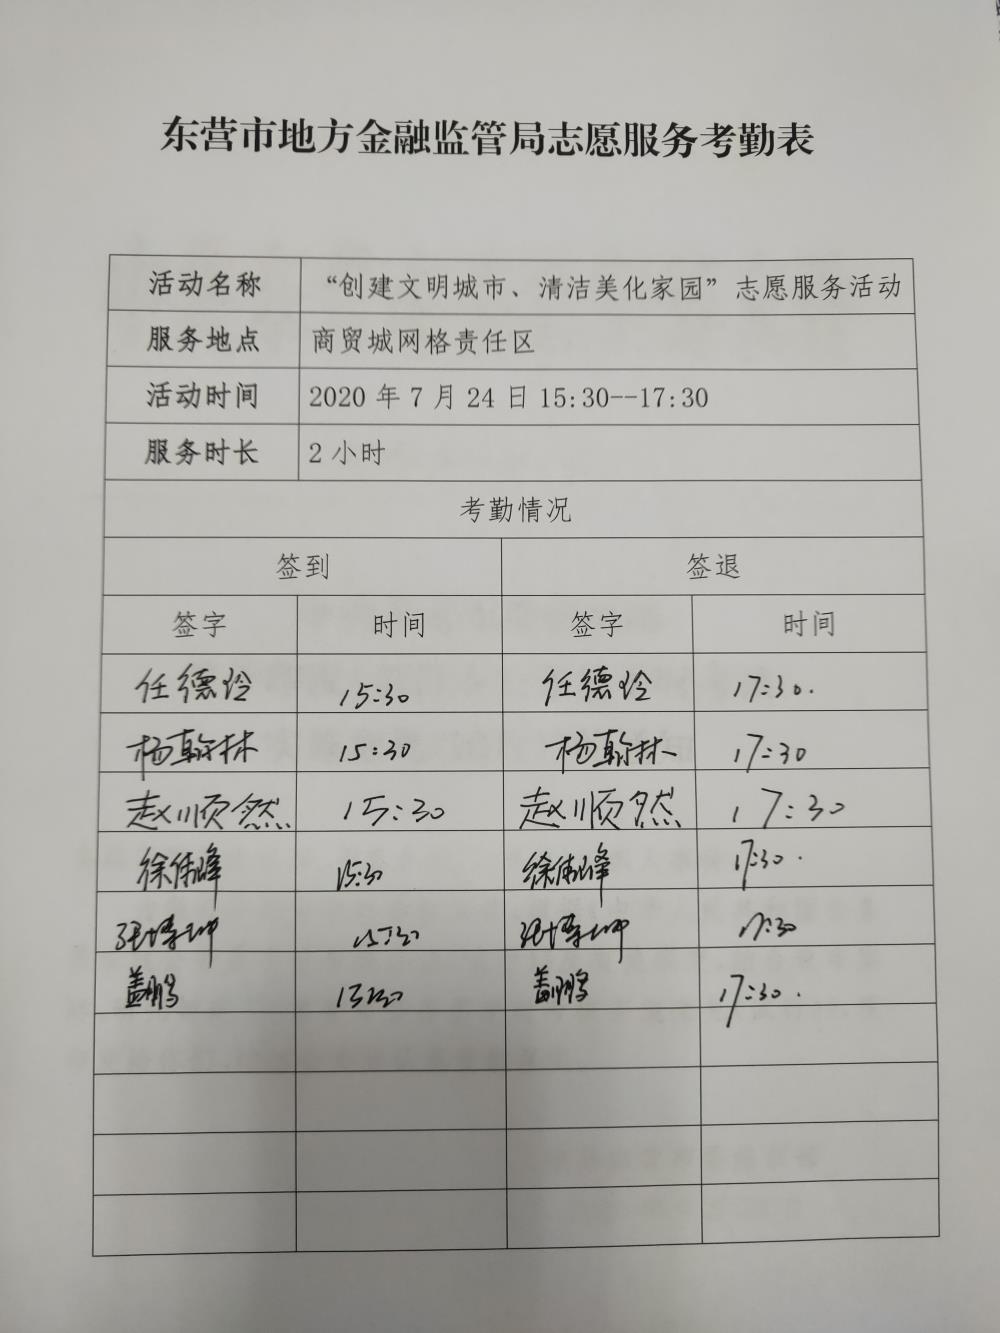 东营市地方金融监管局志愿服务考勤表
活动名称 “创建文明城市、清洁美化家园”志愿服务活动
服务地点 商贸城网格责任区
活动时间 2020 年 7 月 24 日 15:30--17:30
服务时长 2 小时
考勤情况
签到 签退
签字 时间 签字 时间
任德玲 15:30 任德玲 17:30.
杨翰林 15:30 杨翰林 17:30
赵顺然 15:30 赵顺然 17:30
徐伟峰 15:30 徐伟峰 17:30.
张博坤 15:30 张博坤 17:30
盖鹏 15:30 盖鹏 17:30.